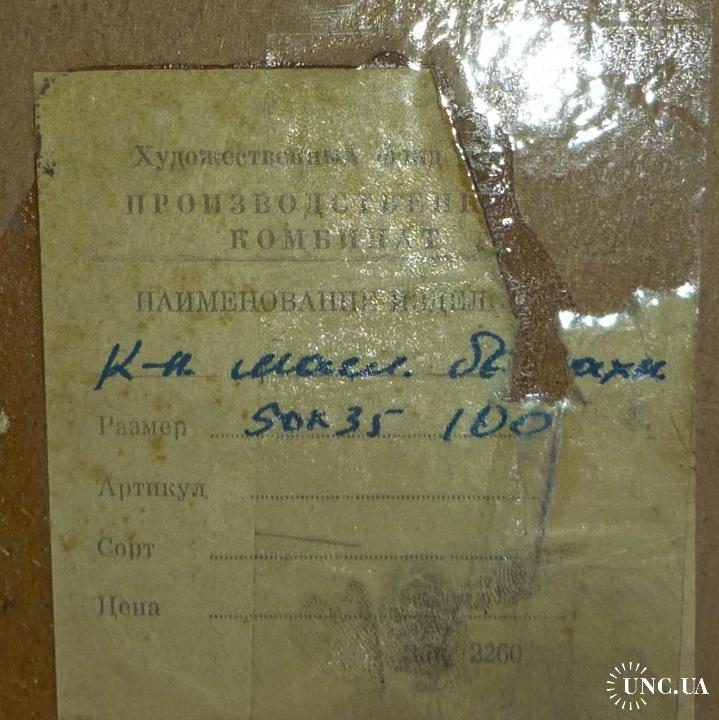 Художественный фонд
ПРОИЗВОДСТВЕНН
КОМБИНАТ
НАИМЕНОВАНИЕ ИЗДЕЛ
к-н. масл.
Размер 50х35 100
Артикул
Сорт
Цена
Зак. 2260
UNC.UA